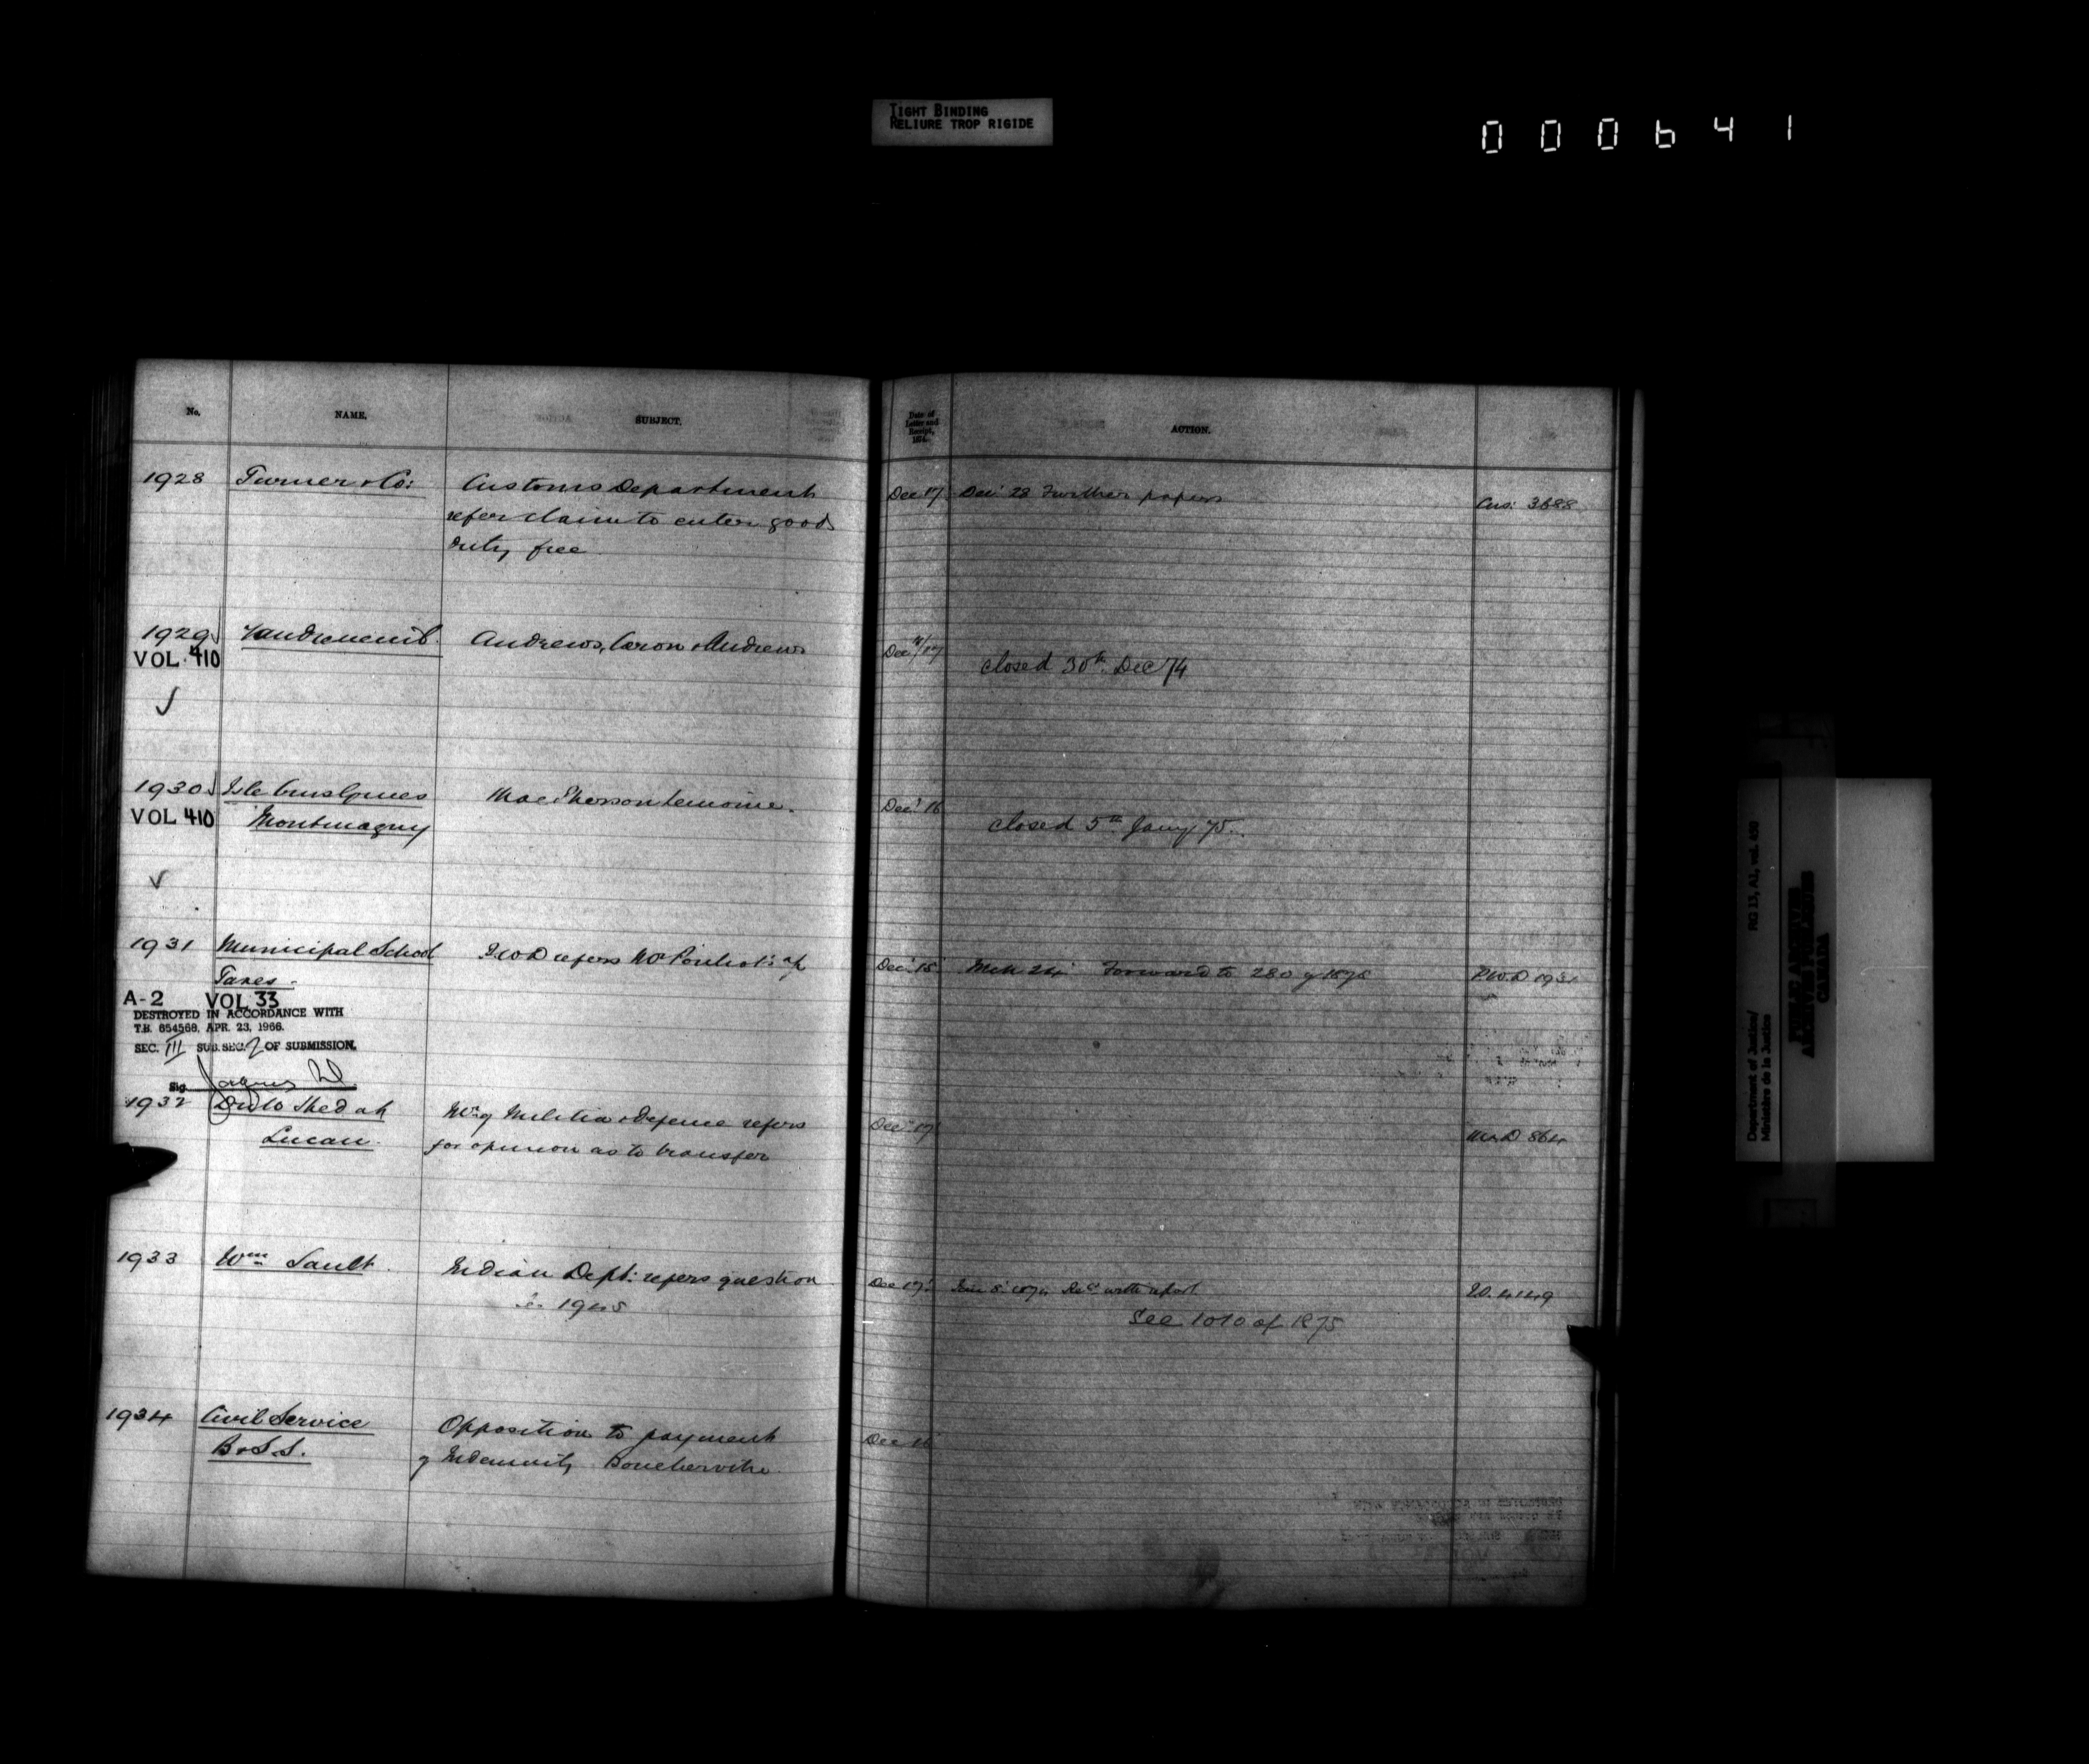 TIGHT BINDING
RELIURE TROP RIGIDE
000641
No. NAME. SUBJECT.
Date of Letter and Receipt, 1874. ACTION.
1928 Turner & Co: Customs Department
refer claim to enter goods
duty free
Dec 17 Dec 28 Further papers Cus: 3688
1929 Andrews, Caron & Andrews
VOL. 410
Dec 17
closed 30th Dec 74
1930 Isle aux Grues MacPherson Lemoine.
VOL 410 Montmagny
Dec 16
closed 5th Jany 75.
1931 Municipal School refers
Taxes
Dec 15 Mch 24 Forward to 280 of 1875 P.W.D 1931
A-2 VOL 33
DESTROYED IN ACCORDANCE WITH
T.B. 654568, APR. 23, 1966.
SEC. III SUB. SEC. 2 OF SUBMISSION.
Sig.
1932 Drill Shed at Mr of Militia & Defence refers
Lucan for opinion as to transfer
Dec 17
1933 Wm Sault Indian Dept: refers question
1945
Dec 17 4149
See 1010 of 1875
1934 Civil Service Opposition to payment
B & S.S. of Indemnity Boucherville
Dec 16
RG 13, A2, vol. 450
Department of Justice/
Ministère de la Justice
PUBLIC ARCHIVES
ARCHIVES PUBLIQUES
CANADA